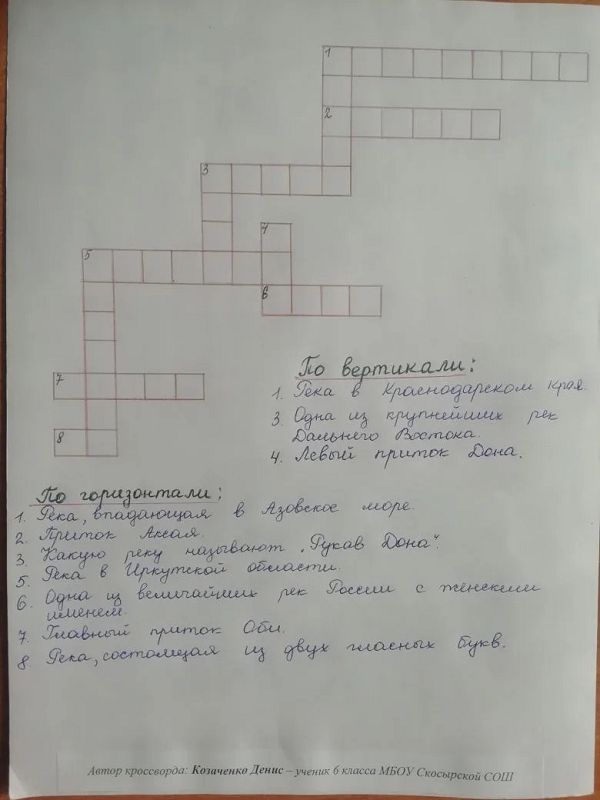 1
2
3
7
5
6
7
8
По вертикали:
1. Река в Краснодарском крае.
3. Одна из крупнейших рек
Дальнего Востока.
4. Левый приток Дона.
По горизонтали:
1. Река, впадающая в Азовское море.
2. Приток Аксая.
3. Какую реку называют „Рукав Дона“.
5. Река в Иркутской области.
6. Одна из величайших рек России с женским
именем.
7. Главный приток Оби.
8. Река, состоящая из двух гласных букв.
Автор кроссворда: Козаченко Денис – ученик 6 класса МБОУ Скосырской СОШ